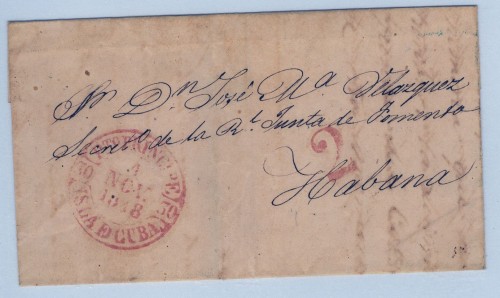 Sr. Dn. José Ma. Velazquez
Secreto. de la Rl. Junta de Fomento
Habana
2
PTO. PRINCIPE
4
NOV
1848
ISLA D CUBA